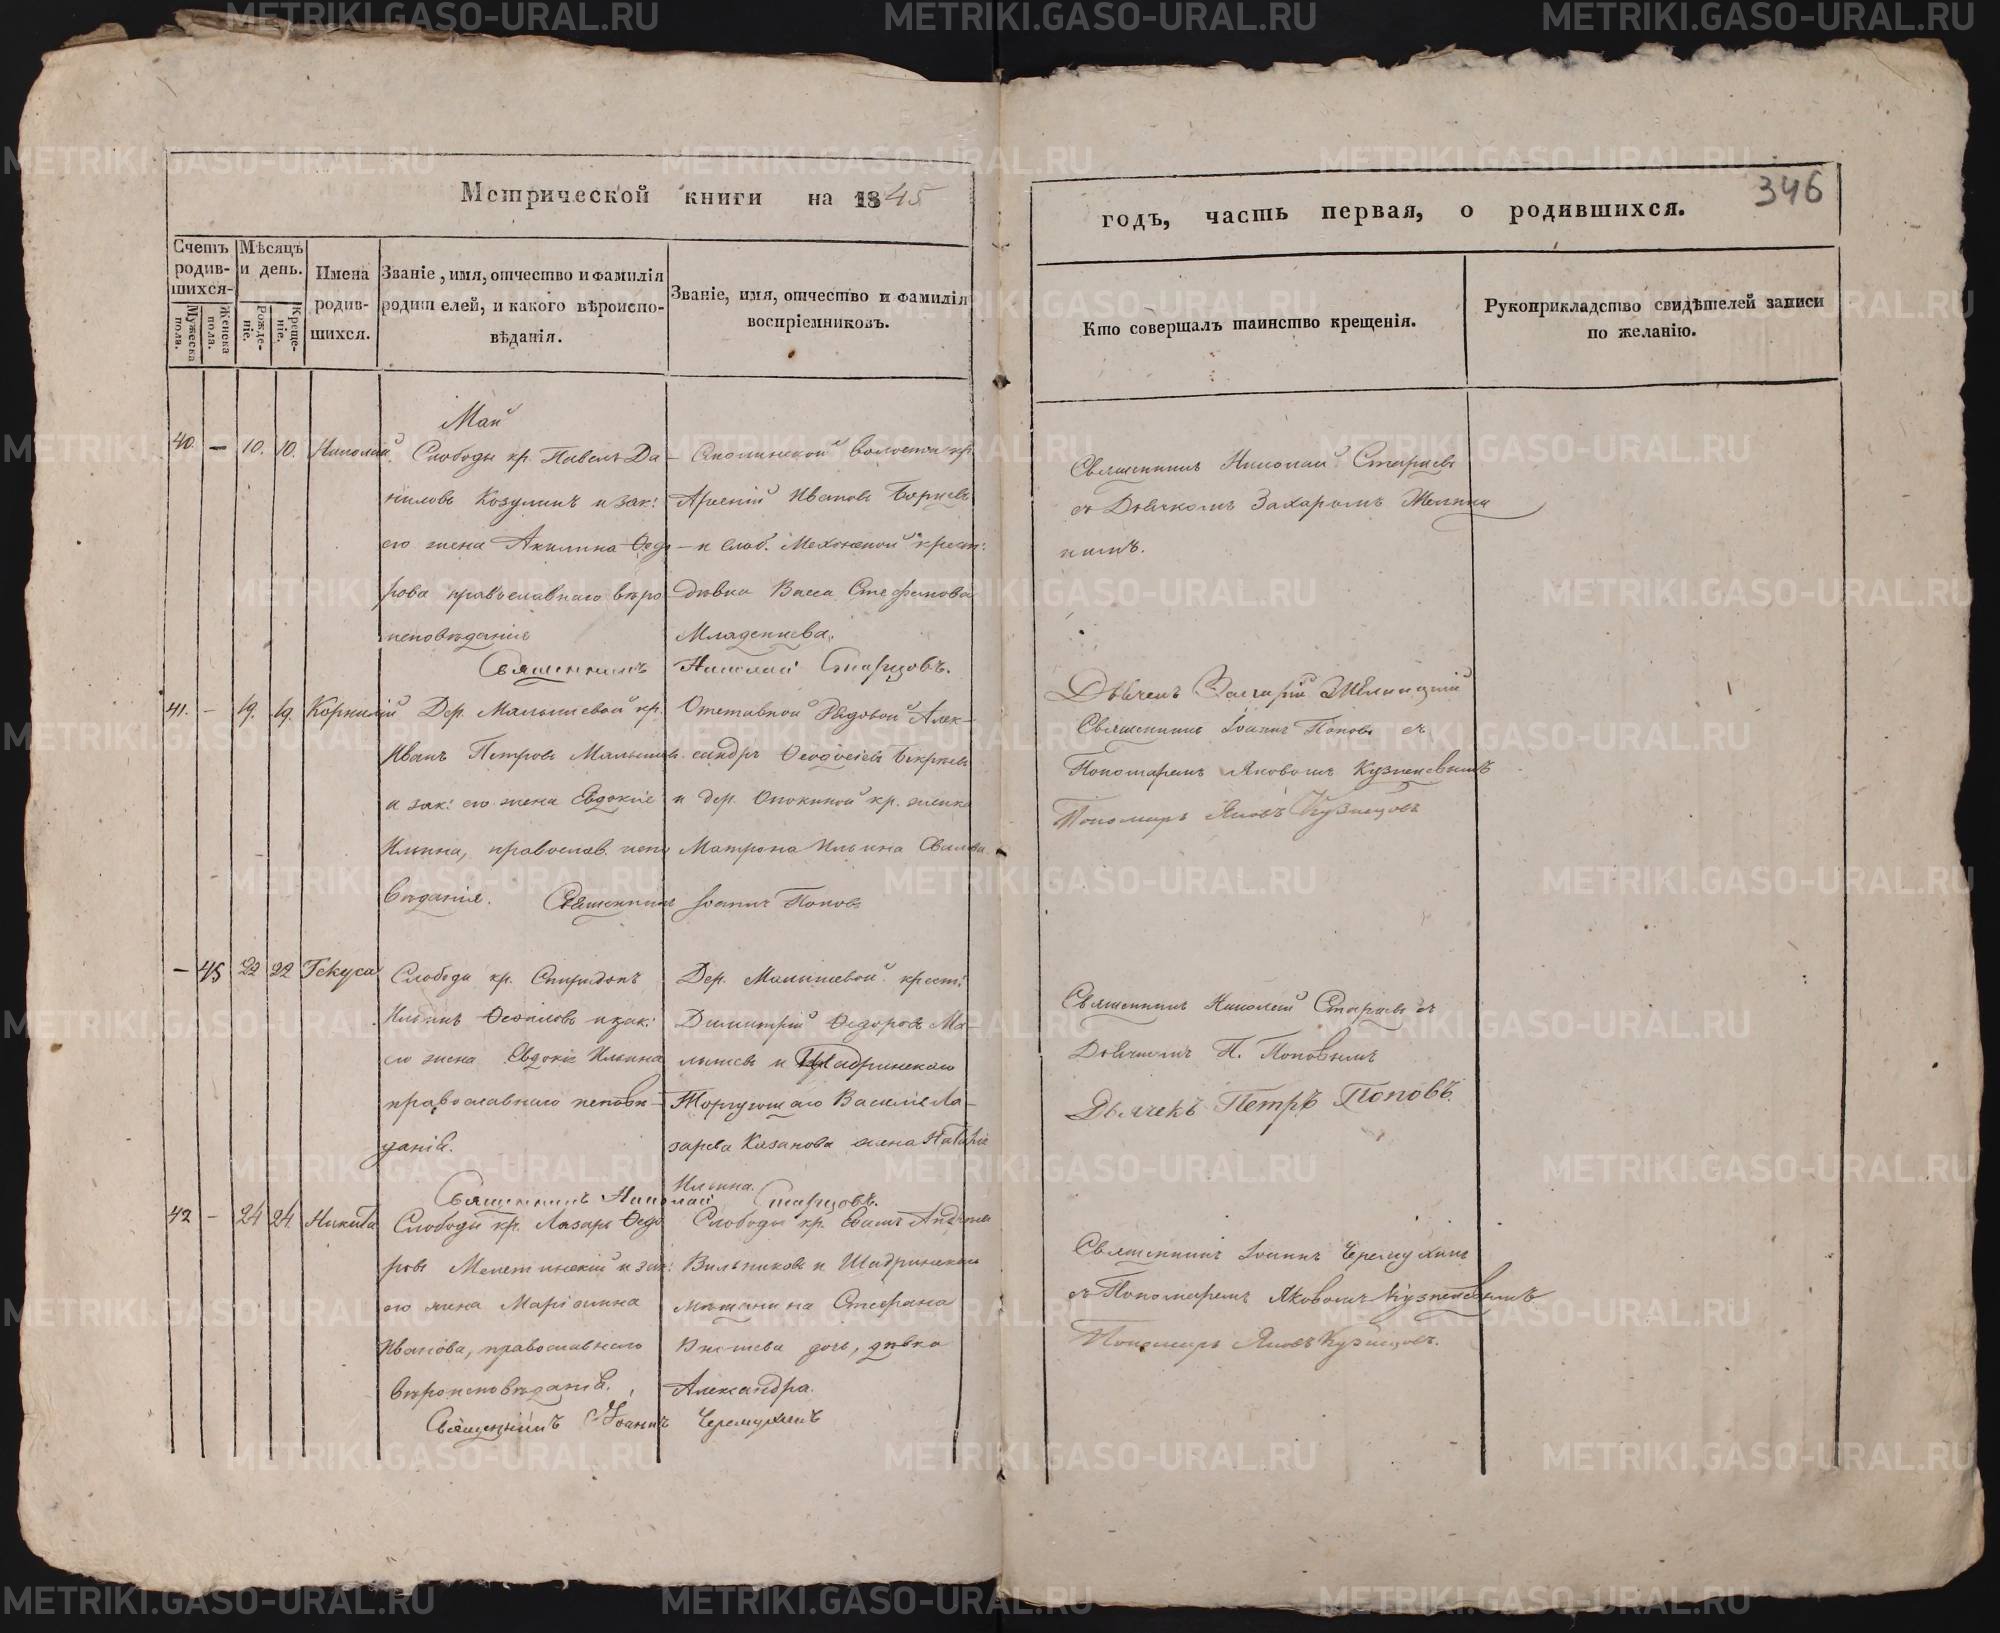 Метрической книги на 1845
годъ, часть первая, о родившихся.
346
Счетъ родившихся.
Мѣсяцъ и день.
Имена родившихся.
Званіе, имя, отчество и фамилія родителей, и какого вѣроисповѣданія.
Званіе, имя, отчество и фамилія воспріемниковъ.
Кто совершалъ таинство крещенія.
Рукоприкладство свидѣтелей записи по желанію.
Мужеска пола.
Женска пола.
Рожденіе.
Крещеніе.
Май
40. – 10. 10. Николай.
Слободы кр. Павелъ Да-
ниловъ Козулинъ и зак:
его жена Акилина Ѳедо
рова православнаго вѣро
исповѣданія
волости кр.
Арсеній Ивановъ
и слоб. Мехонской крест:
дѣвка Васса Стефанова
Младенцева.
Священникъ Николай Старцовъ.
Священникъ Николай Старцевъ
съ Дьячкомъ Захаромъ
Дьячекъ
41. – 19. 19. Корнилій
Дер. Малышевой кр.
Иванъ Петровъ Малышевъ
и зак: его жена Евдокія
Ильина, православ. испо
вѣданія.
Отставной Рядовой Алек-
сандръ Ѳеодосіевъ
и дер. кр. женка
Матрона Ильина
Священникъ Іоаннъ Поповъ
Священникъ Іоаннъ Поповъ съ
Пономаремъ Яковомъ Кузнецовымъ
Пономарь Яковъ Кузнецовъ
– 45 22 22 Гекуса
Слободы кр. Спиридонъ
Ильинъ Ѳеофиловъ и зак:
его жена Евдокія Ильина
православнаго исповѣ-
данія.
Дер. Малышевой крест:
Димитрій Ѳедоровъ Ма-
лышевъ и Шадринскаго
Торгующаго Василія Ла-
зарева Казакова жена Наталія
Ильина.
Священникъ Николай Старцовъ.
Священникъ Николай Старцевъ съ
Дьячкомъ П. Поповымъ
Дьячекъ Петръ Поповъ.
42 – 24 24 Никита
Слободы кр. Лазарь Ѳедо
ровъ и зак:
его жена Маріамна
Иванова, православнаго
вѣроисповѣданія.
Слободы кр.
и Шадринскаго
мѣщанина Стефана
дочь, дѣвка
Александра.
Священникъ Іоаннъ Черемухинъ
Священникъ Іоаннъ Черемухинъ
съ Пономаремъ Яковомъ Кузнецовымъ
Пономарь Яковъ Кузнецовъ.
METRIKI.GASO-URAL.RU